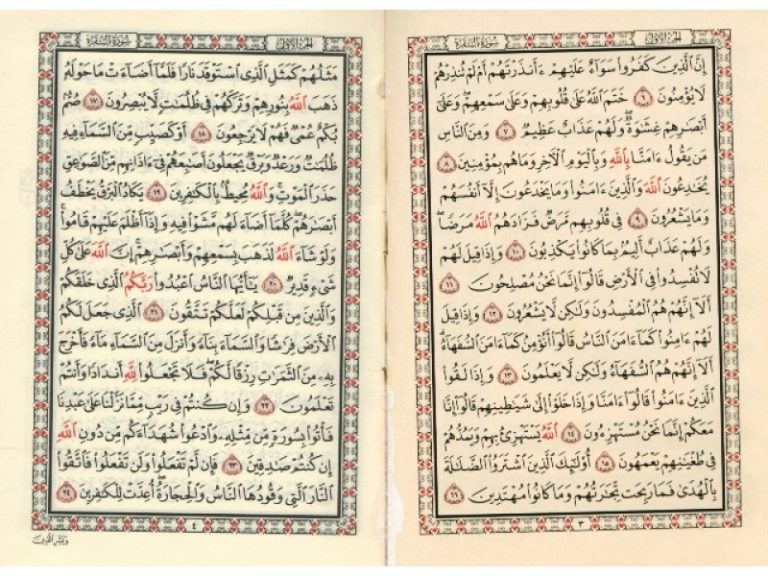 الجزء الأول
سورة البقرة
إِنَّ الَّذِينَ كَفَرُوا سَوَاءٌ عَلَيْهِمْ ءَأَنذَرْتَهُمْ أَمْ لَمْ تُنذِرْهُمْ
لَا يُؤْمِنُونَ ٦ خَتَمَ اللَّهُ عَلَىٰ قُلُوبِهِمْ وَعَلَىٰ سَمْعِهِمْ ۖ وَعَلَىٰ
أَبْصَارِهِمْ غِشَاوَةٌ ۖ وَلَهُمْ عَذَابٌ عَظِيمٌ ٧ وَمِنَ النَّاسِ
مَن يَقُولُ ءَامَنَّا بِاللَّهِ وَبِالْيَوْمِ الْآخِرِ وَمَا هُم بِمُؤْمِنِينَ ٨
يُخَادِعُونَ اللَّهَ وَالَّذِينَ ءَامَنُوا وَمَا يَخْدَعُونَ إِلَّا أَنفُسَهُمْ
وَمَا يَشْعُرُونَ ٩ فِي قُلُوبِهِم مَّرَضٌ فَزَادَهُمُ اللَّهُ مَرَضًا ۖ
وَلَهُمْ عَذَابٌ أَلِيمٌ بِمَا كَانُوا يَكْذِبُونَ ١٠ وَإِذَا قِيلَ لَهُمْ
لَا تُفْسِدُوا فِي الْأَرْضِ قَالُوا إِنَّمَا نَحْنُ مُصْلِحُونَ ١١
أَلَا إِنَّهُمْ هُمُ الْمُفْسِدُونَ وَلَٰكِن لَّا يَشْعُرُونَ ١٢ وَإِذَا قِيلَ
لَهُمْ ءَامِنُوا كَمَا ءَامَنَ النَّاسُ قَالُوا أَنُؤْمِنُ كَمَا ءَامَنَ السُّفَهَاءُ ۗ
أَلَا إِنَّهُمْ هُمُ السُّفَهَاءُ وَلَٰكِن لَّا يَعْلَمُونَ ١٣ وَإِذَا لَقُوا
الَّذِينَ ءَامَنُوا قَالُوا ءَامَنَّا وَإِذَا خَلَوْا إِلَىٰ شَيَاطِينِهِمْ قَالُوا إِنَّا
مَعَكُمْ إِنَّمَا نَحْنُ مُسْتَهْزِءُونَ ١٤ اللَّهُ يَسْتَهْزِئُ بِهِمْ وَيَمُدُّهُمْ
فِي طُغْيَانِهِمْ يَعْمَهُونَ ١٥ أُولَٰئِكَ الَّذِينَ اشْتَرَوُا الضَّلَالَةَ
بِالْهُدَىٰ فَمَا رَبِحَت تِّجَارَتُهُمْ وَمَا كَانُوا مُهْتَدِينَ ١٦
٣
الجزء الأول
سورة البقرة
مَثَلُهُمْ كَمَثَلِ الَّذِي اسْتَوْقَدَ نَارًا فَلَمَّا أَضَاءَتْ مَا حَوْلَهُ
ذَهَبَ اللَّهُ بِنُورِهِمْ وَتَرَكَهُمْ فِي ظُلُمَاتٍ لَّا يُبْصِرُونَ ١٧ صُمٌّ
بُكْمٌ عُمْيٌ فَهُمْ لَا يَرْجِعُونَ ١٨ أَوْ كَصَيِّبٍ مِّنَ السَّمَاءِ فِيهِ
ظُلُمَاتٌ وَرَعْدٌ وَبَرْقٌ يَجْعَلُونَ أَصَابِعَهُمْ فِي ءَاذَانِهِم مِّنَ الصَّوَاعِقِ
حَذَرَ الْمَوْتِ ۚ وَاللَّهُ مُحِيطٌ بِالْكَافِرِينَ ١٩ يَكَادُ الْبَرْقُ يَخْطَفُ
أَبْصَارَهُمْ ۖ كُلَّمَا أَضَاءَ لَهُم مَّشَوْا فِيهِ وَإِذَا أَظْلَمَ عَلَيْهِمْ قَامُوا ۚ
وَلَوْ شَاءَ اللَّهُ لَذَهَبَ بِسَمْعِهِمْ وَأَبْصَارِهِمْ ۚ إِنَّ اللَّهَ عَلَىٰ كُلِّ
شَيْءٍ قَدِيرٌ ٢٠ يَا أَيُّهَا النَّاسُ اعْبُدُوا رَبَّكُمُ الَّذِي خَلَقَكُمْ
وَالَّذِينَ مِن قَبْلِكُمْ لَعَلَّكُمْ تَتَّقُونَ ٢١ الَّذِي جَعَلَ لَكُمُ
الْأَرْضَ فِرَاشًا وَالسَّمَاءَ بِنَاءً وَأَنزَلَ مِنَ السَّمَاءِ مَاءً فَأَخْرَجَ
بِهِ مِنَ الثَّمَرَاتِ رِزْقًا لَّكُمْ ۖ فَلَا تَجْعَلُوا لِلَّهِ أَندَادًا وَأَنتُمْ
تَعْلَمُونَ ٢٢ وَإِن كُنتُمْ فِي رَيْبٍ مِّمَّا نَزَّلْنَا عَلَىٰ عَبْدِنَا
فَأْتُوا بِسُورَةٍ مِّن مِّثْلِهِ وَادْعُوا شُهَدَاءَكُم مِّن دُونِ اللَّهِ
إِن كُنتُمْ صَادِقِينَ ٢٣ فَإِن لَّمْ تَفْعَلُوا وَلَن تَفْعَلُوا فَاتَّقُوا
النَّارَ الَّتِي وَقُودُهَا النَّاسُ وَالْحِجَارَةُ ۖ أُعِدَّتْ لِلْكَافِرِينَ ٢٤
٤
وَبَشِّرِ الَّذِينَ